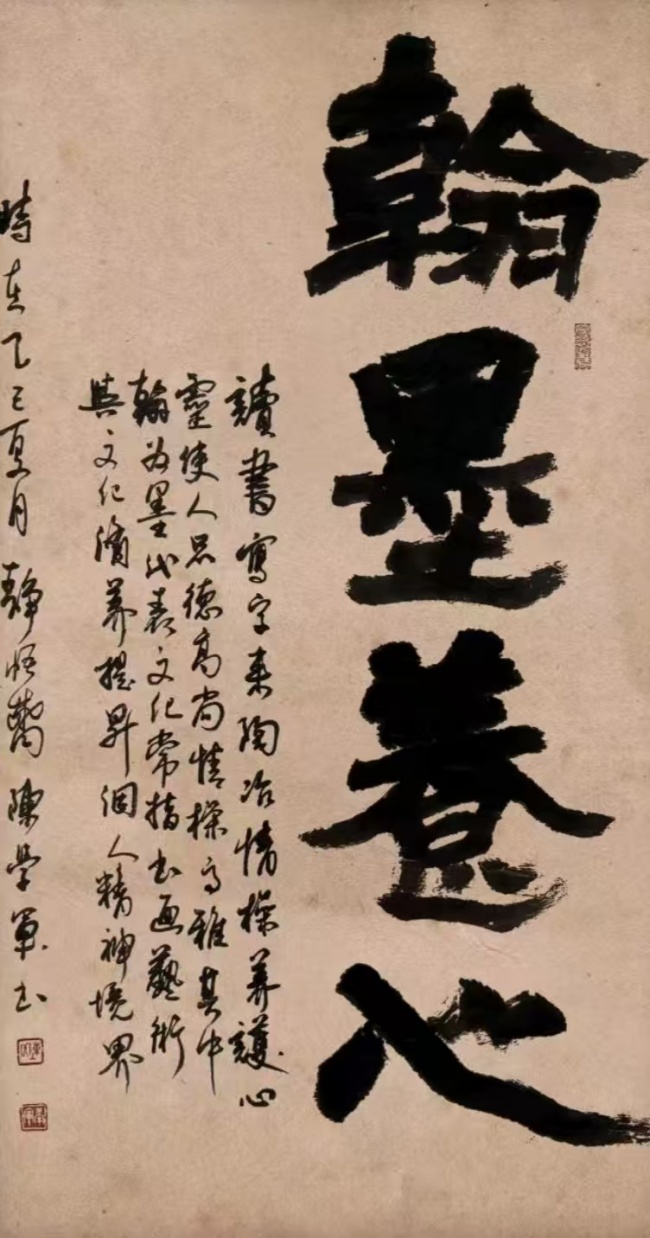 翰墨養心
讀書寫字來陶冶情操养護心
靈使人品德高尚情操高雅其中
翰為墨代表文化常指书画藝術
與文化滴养提昇個人精神境界
時在乙巳夏月靜悟齋陳學軍书